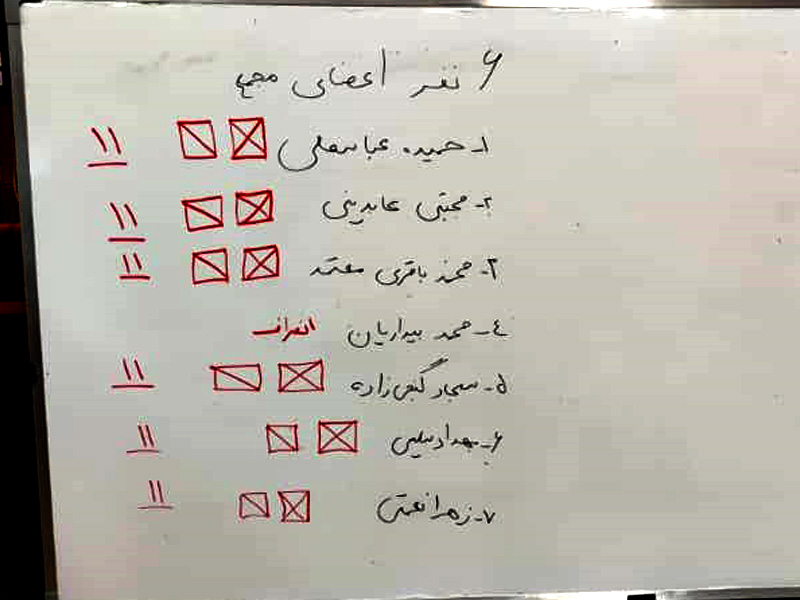 ۶ نفر اعضای مجمع
۱- حمیده عباسعلی ۱۱
۲- مجتبی عابدینی ۱۱
۳- محمد باقری معتمد ۱۱
۴- محمد بیداریان انصراف
۵- سجاد گنج‌زاده ۱۱
۶- بهداد سلیمی ۱۱
۷- زهرا نعمتی ۱۱